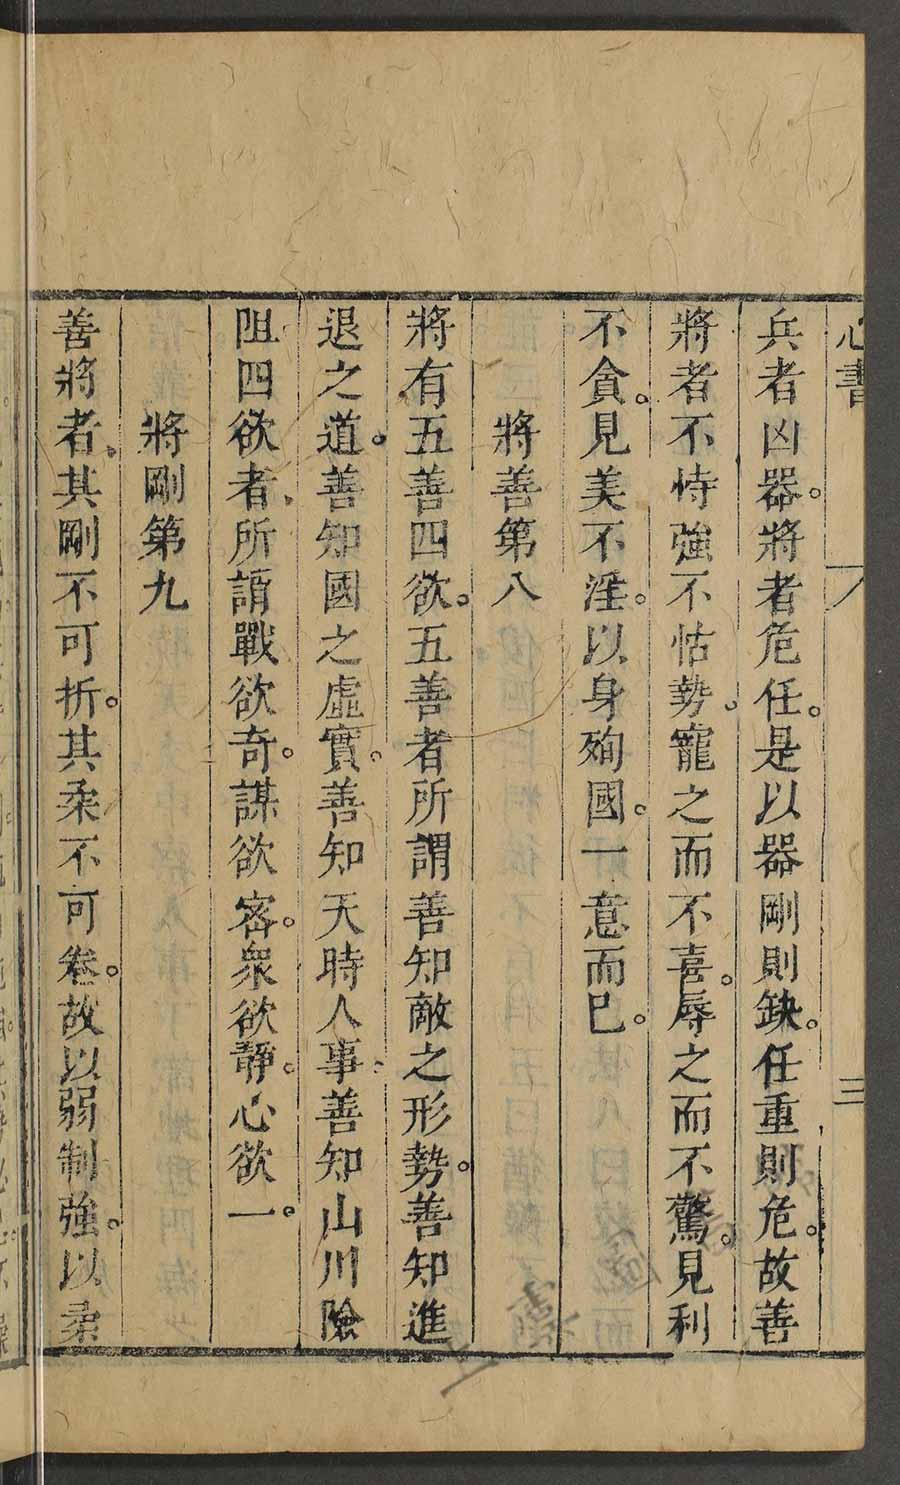 心書
三
兵者凶器。將者危任。是以器剛則缺。任重則危。故善
將者不恃強不怙勢。寵之而不喜。辱之而不驚。見利
不貪。見美不淫。以身殉國。一意而已。
將善第八
將有五善四欲。五善者所謂善知敵之形勢。善知進
退之道。善知國之虛實。善知天時人事。善知山川險
阻四欲者、所謂戰欲奇。謀欲密。眾欲靜。心欲一。
將剛第九
善將者、其剛不可折。其柔不可卷。故以弱制強。以柔